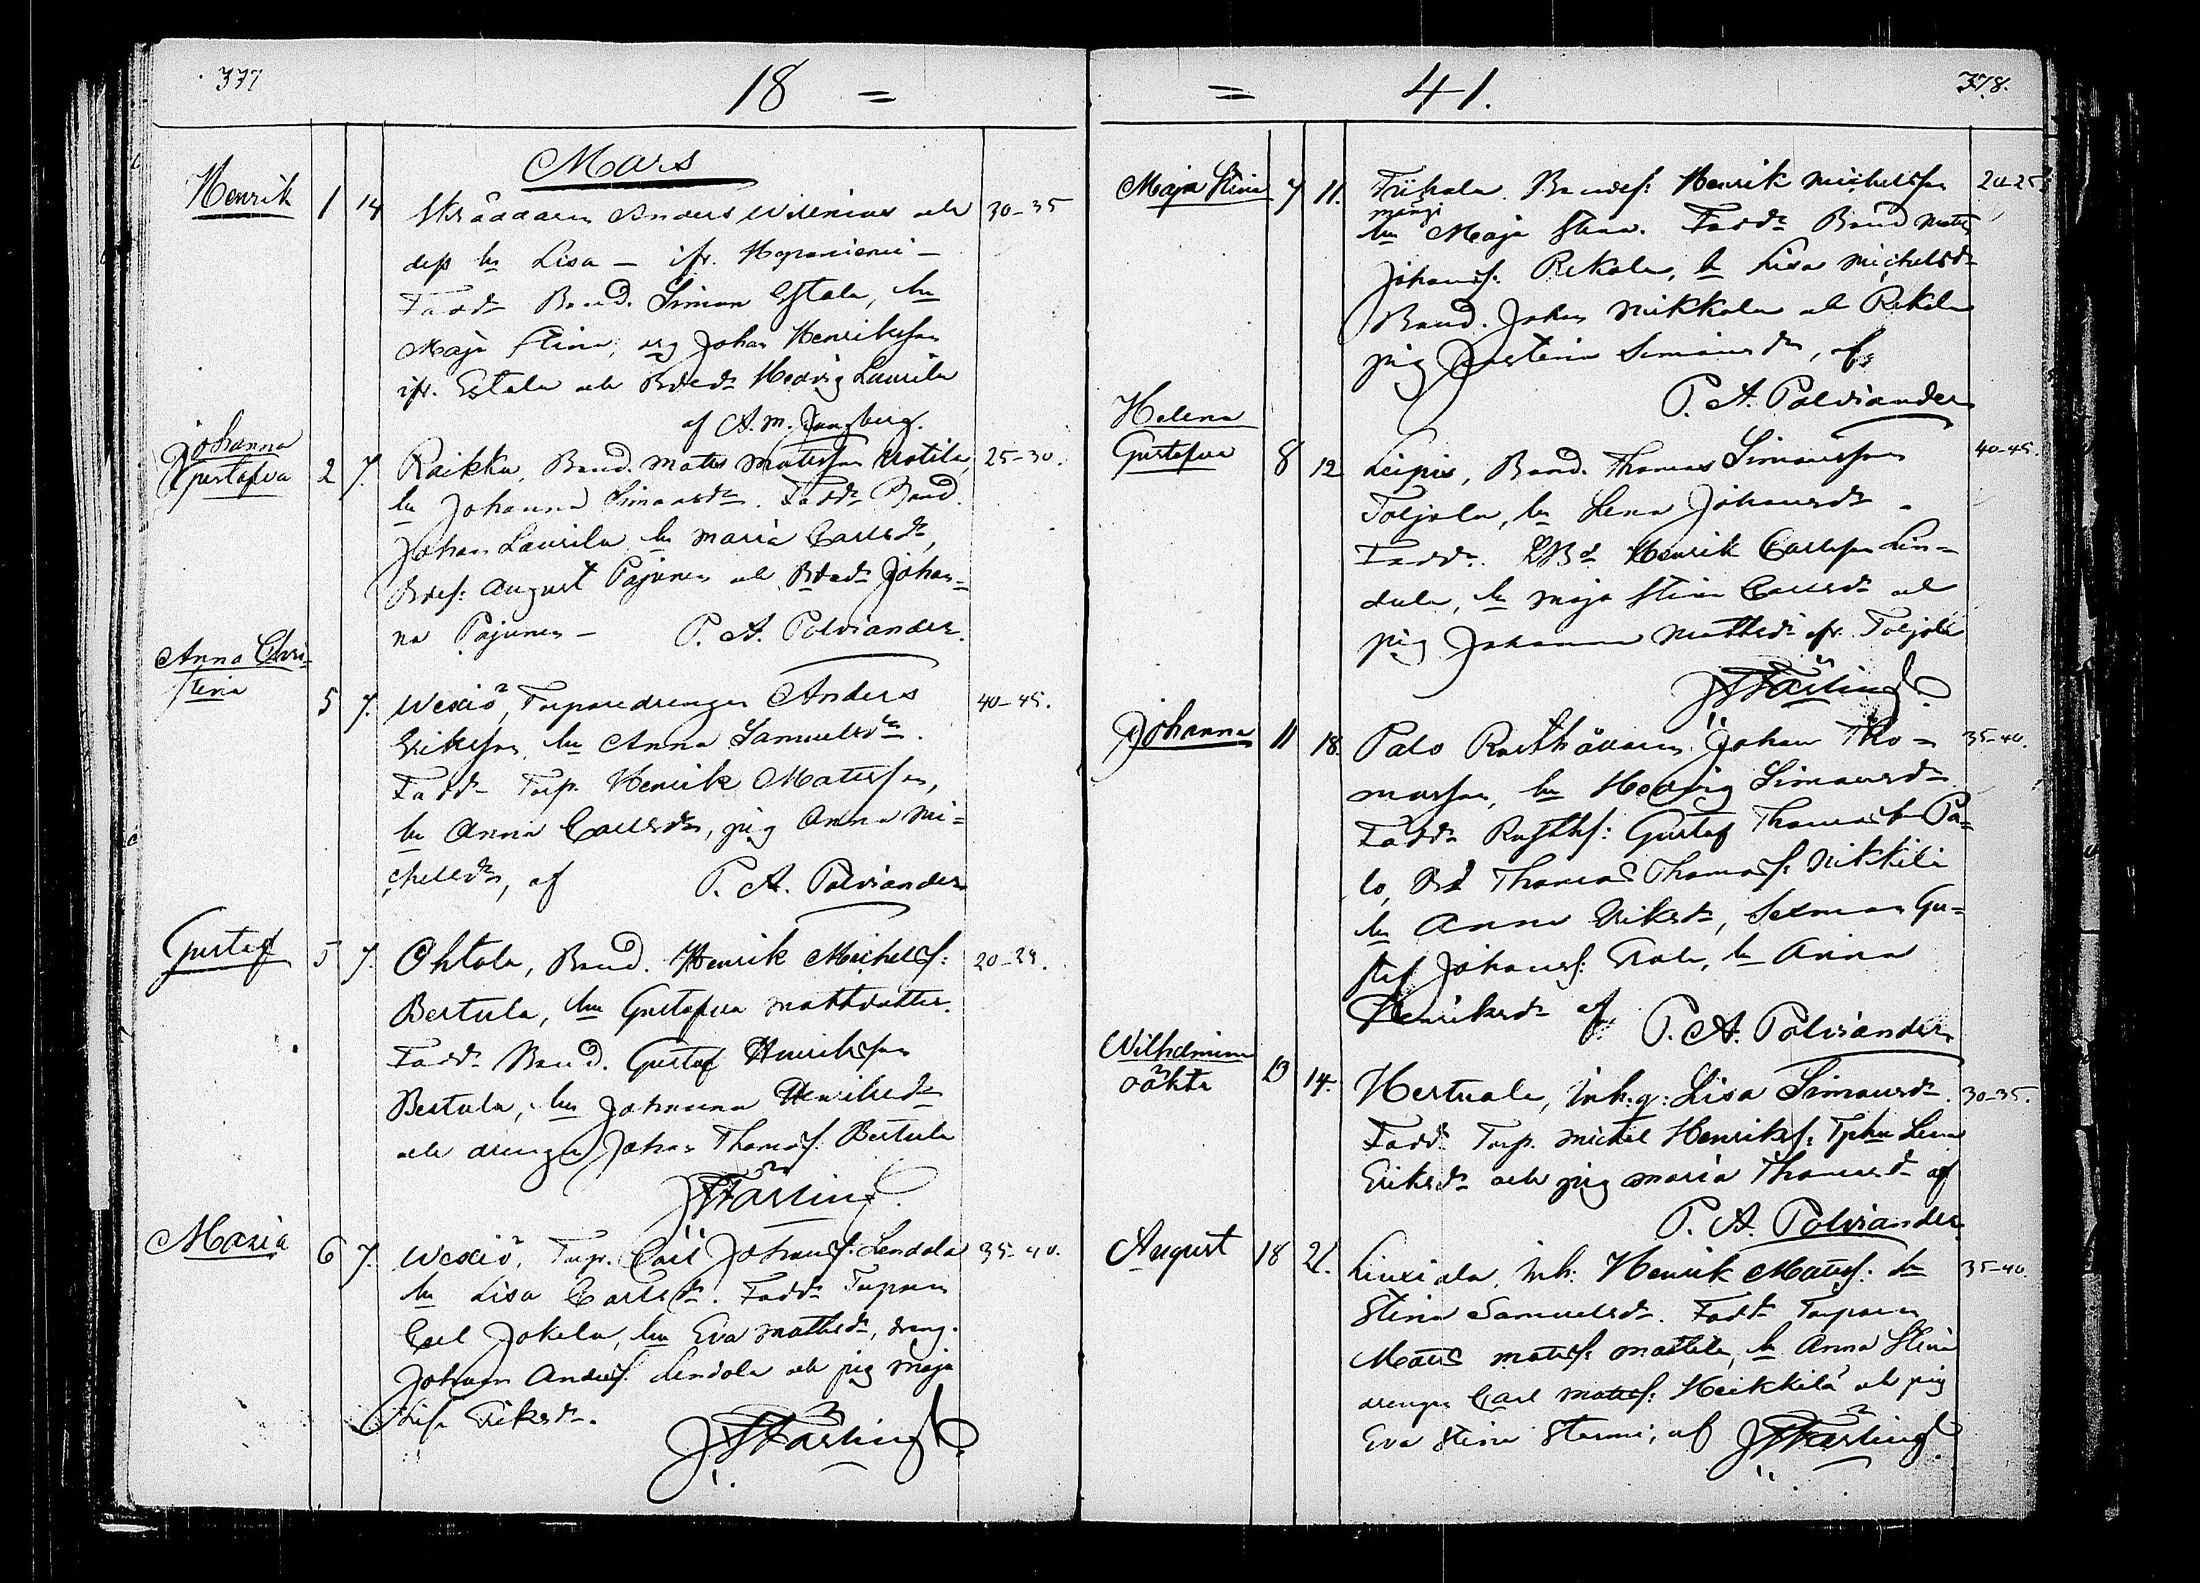 377
18 =
Mars
Henrik 1 14 Skräddaren Anders Wilenius och 30-35
dess hu Lisa - ifr. Haponiemi -
Fadd: Bond. Simon Estola, hu
Maja Stina, drg Johan Henriksson
ifr. Estola och Bdedr Hedvig Laurila
af A. M. Ljungberg.
Johanna
Gustafva 2 7. Raikku, Bond. Matts Mattsson Uotila 25-30.
hu Johanna Simonsdr. Fadd: Bond.
Johan Laurila hu Maria Carlsdr,
Bdes: August Pajunen och Bdedr Johan=
na Pajunen - P. A. Polviander.
Anna Chri-
stina 5 7. Wexiö, Torparedrengen Anders 40-45.
Eriksson, hu Anna Samuelsdr.
Fadd: Torp. Henrik Matsson,
hu Anna Carlsdr, pig Anna Mi=
chelsdr, af P. A. Polviander
Gustaf 5 7. Ohtola, Bond. Henrik Michelss: 20-29.
Bertula, hu Gustafva Mattsdotter.
Fadd: Bond. Gustaf Henriksson
Bertula, hu Johanna Henriksdr
och drengen Johan Thomass. Bertula
Maria 6 7. Wexiö, Torp. Carl Johanss: Lendola 35-40.
hu Lisa Carlsdr. Fadd: Torparen
Carl Jokela, hu Eva Mattsdr, dreng.
Johan Anderss. Lendola och pig Maja
Lisa Eriksdr.
= 41. 378.
Maja Stina 7 11. Bondes: Henrik Michelsson 20-25
hu Maja Stina. Fadd: Bond Matts
Johanss. Rekola, hu Lisa Michelsdr
Bond. Johan Nikkola och Rekola
pig Justina Simonsdr, af
P. A. Polviander
Helena
Gustafva 8 12 Leipis, Bond. Thomas Simonsson 40-45.
Toljola, hu Lena Johansdr.
Fadd: Henrik Carlsson Lin=
dula, hu Maja Stina Carlsdr och
pig Johanna Mattsdr ifr. Toljola
Johanna 11 18. Palo Rusthållaren Johan Tho= 35-40.
masson, hu Hedvig Simonsdr
Fadd: Rusths: Gustaf Thomasson Pa=
lo, Thomas Thomass: Nikkilä
hu Anna Eriksdr, Sexman Gu=
staf Johanss: hu Anna
Henriksdr af P. A. Polviander
Wilhelmina
oäkta 13 14. Hertuala, Inh. q: Lisa Simonsdr. 30-35.
Fadd: Torp. Michel Henrikss: Tphu Lena
Eriksdr och pig Maria Thomasdr af
P. A. Polviander.
August 18 21. Liuxiala, Inh: Henrik Matss: hu 35-40.
Stina Samuelsdr. Fadd: Torparen
Matts Matss: Mattila, hu Anna Stina
drengen Carl Matss: Heikkilä och pig
Eva Stina af